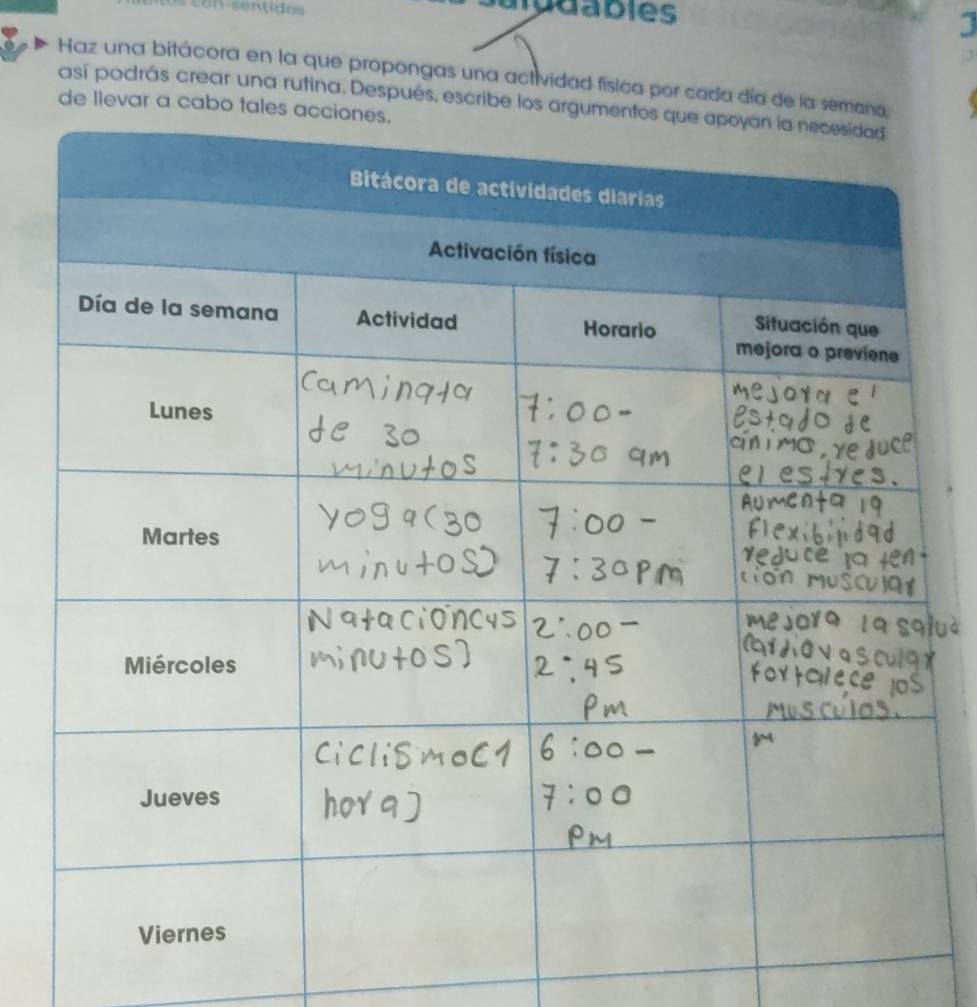 con-sentidos
saludables
Haz una bitácora en la que propongas una actividad física por cada día de la semana,
así podrás crear una rutina. Después, escribe los argumentos que apoyan la necesidad
de llevar a cabo tales acciones.
Bitácora de actividades diarias
Activación física
Día de la semana
Actividad
Horario
Situación que
mejora o previene
Lunes
Caminata
de 30
minutos
7:00-
7:30 am
mejora el
estado de
ánimo, reduce
el estres.
Martes
yoga(30
minutos)
7:00-
7:30pm
Aumenta la
flexibilidad
reduce la ten-
ción muscular
Miércoles
Natacion(45
minutos)
2:00-
2:45
pm
mejora la salud
cardiovascular
fortalece los
musculos.
Jueves
Ciclismo(1
hora)
6:00-
7:00
pm
m
Viernes